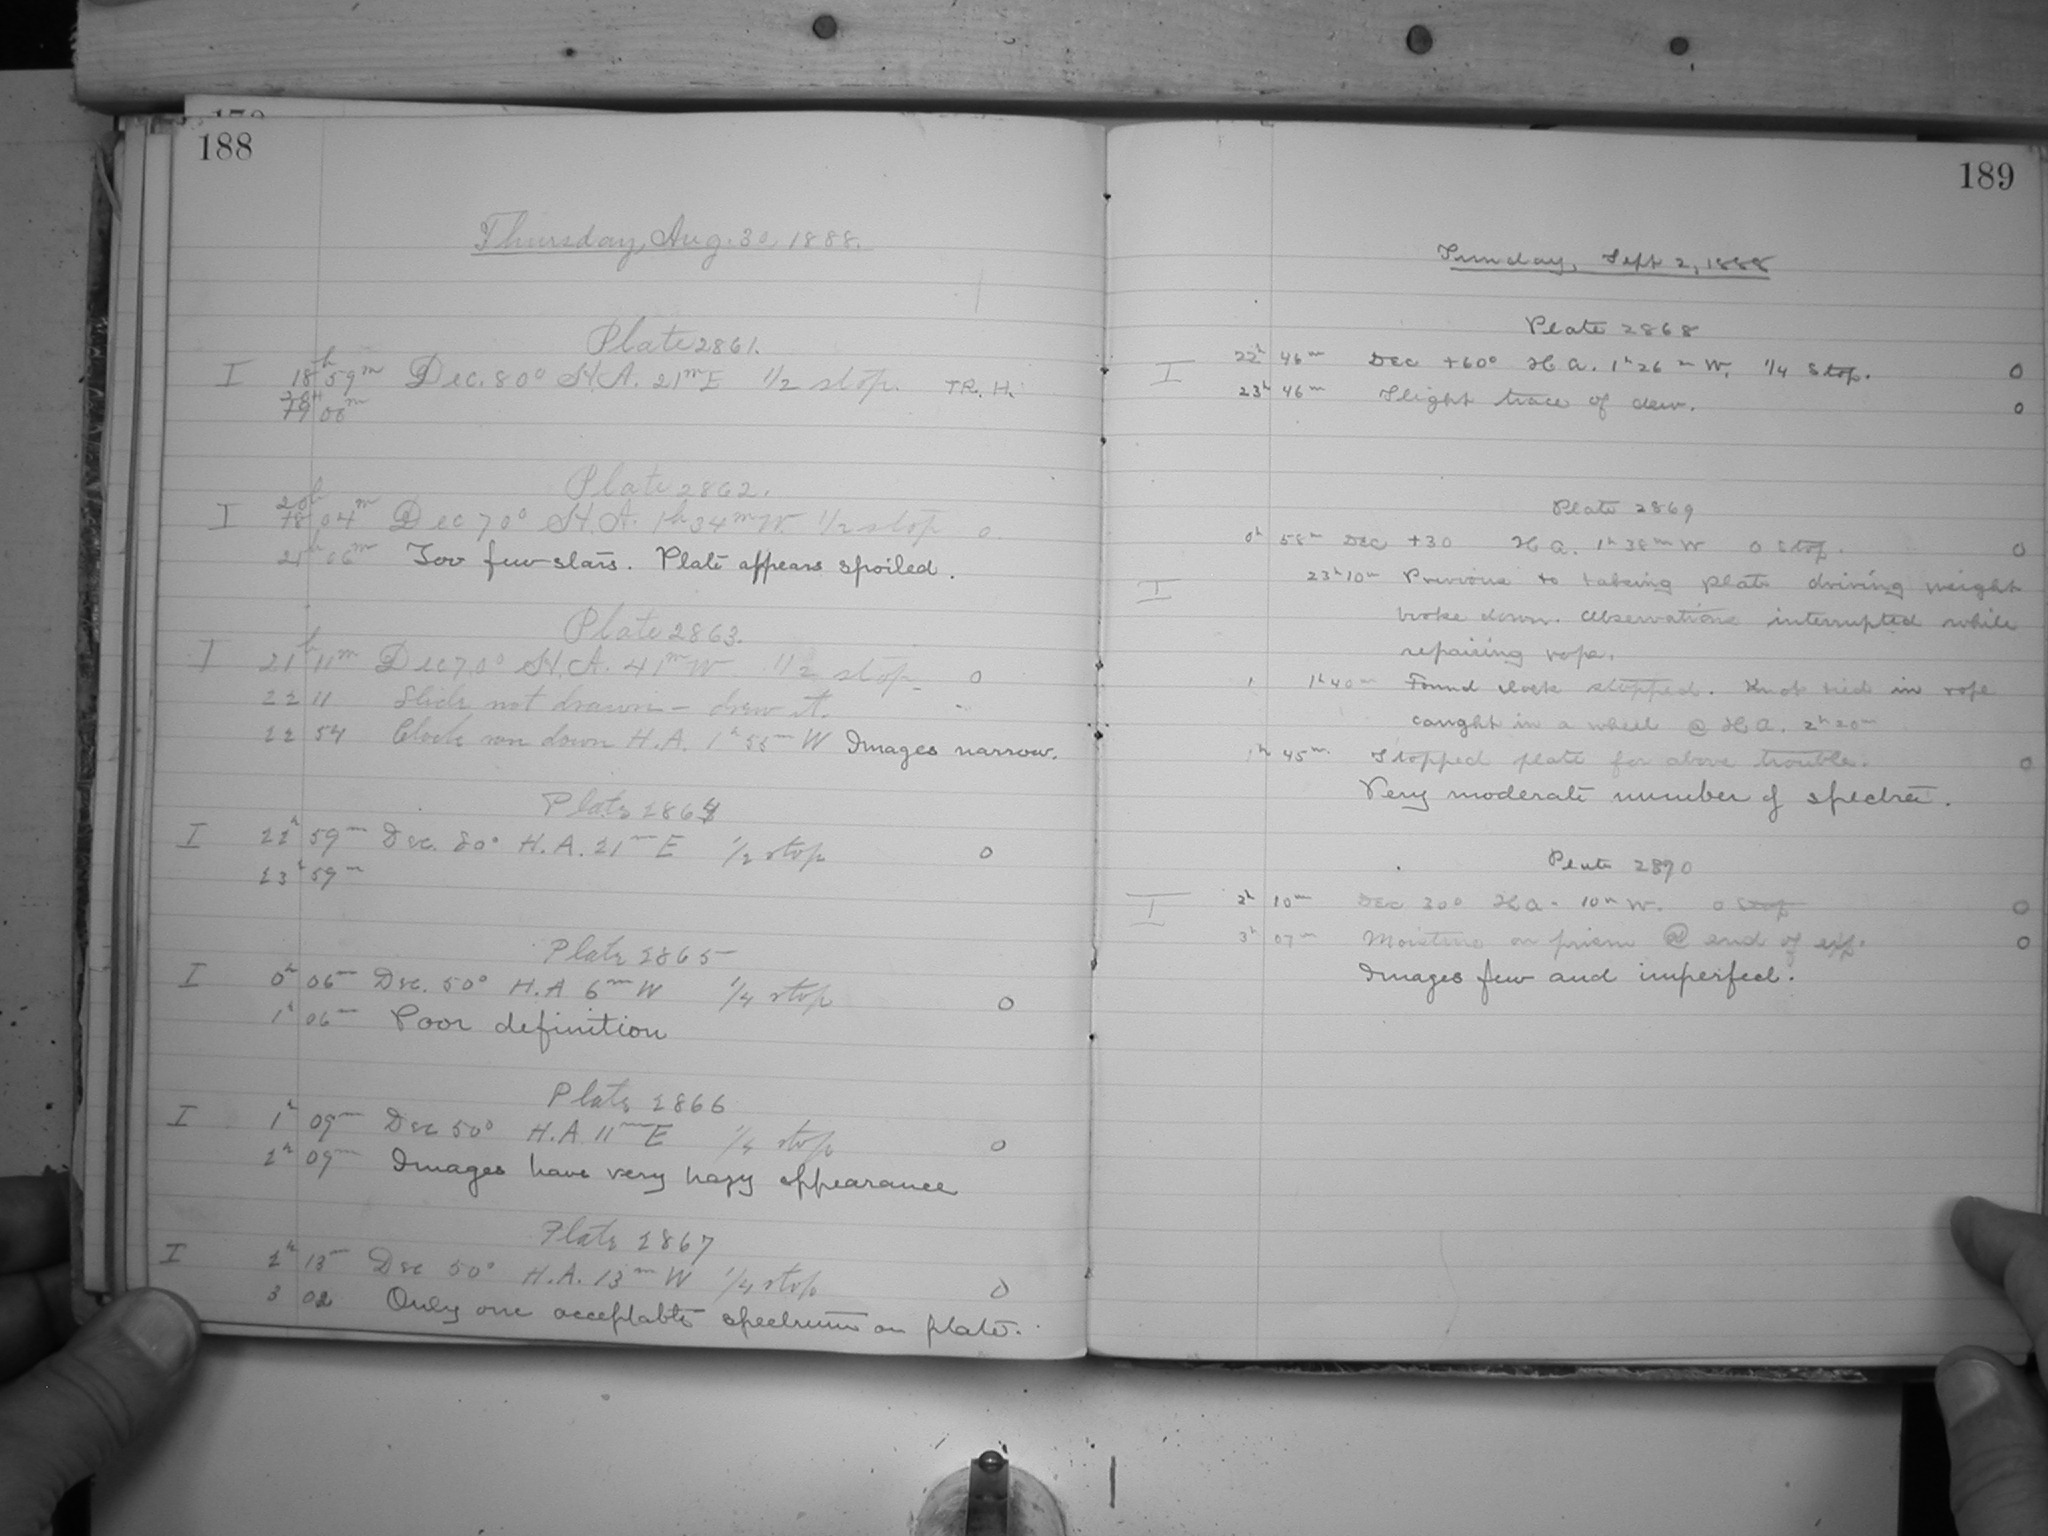 188
Thursday, Aug. 30, 1888.
Plate 2861.
I 18h 59m Dec. 80° H.A. 21m E 1/2 stop. T.R.H.
00m
Plate 2862.
I 20h 04m Dec 70° H.A. 1h 34m W 1/2 stop 0.
21h 06m Too few stars. Plate appears spoiled.
Plate 2863.
I 21h 11m Dec 70° H.A. 41m W 1/2 stop 0
22 11 Slide not drawn – drew it.
22 54 Clock ran down H.A. 1h 55m W Images narrow.
Plate 2864
I 22h 59m Dec. 80° H.A. 21m E 1/2 stop 0
23h 59m
Plate 2865
I 0h 06m Dec. 50° H.A 6m W 1/4 stop 0
1h 06m Poor definition
Plate 2866
I 1h 09m Dec 50° H.A. 11m E 1/4 stop 0
2h 09m Images have very hazy appearance
Plate 2867
I 2h 13m Dec 50° H.A. 13m W 1/4 stop 0
3 02 Only one acceptable spectrum on plate.
189
Sunday, Sept 2, 1888
Plate 2868
I 22h 46m Dec +60° H A. 1h 26m W. 1/4 Stop. 0
23h 46m Slight trace of dew. 0
Plate 2869
0h 58m Dec +30 H A. 1h 38m W 0 stop. 0
I 23h 10m Previous to taking plate driving weight
broke down. Observations interrupted while
repairing rope.
1h 40m Found clock stopped. Knot tied in rope
caught in a wheel @ H A. 2h 20m
1h 45m. Stopped plate for above trouble. 0
Very moderate number of spectra.
Plate 2870
I 2h 10m Dec 30° H A. 10m W. 0 Stop 0
3h 07m Moisture on prism @ end of exp. 0
Images few and imperfect.